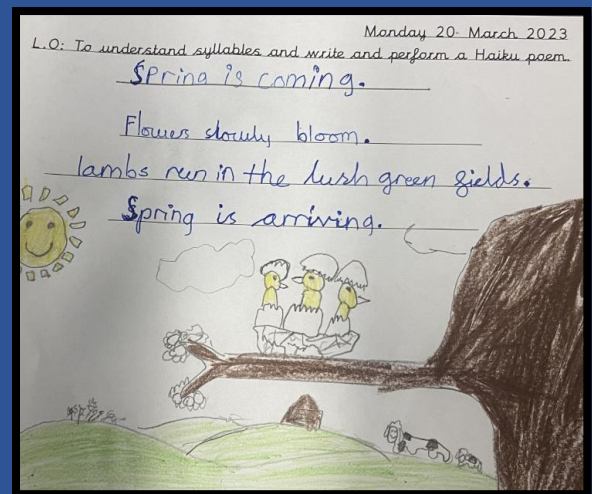 Monday 20 March 2023
L.O: To understand syllables and write and perform a Haiku poem.
Spring is coming.
Flowers slowly bloom.
lambs run in the lush green fields.
Spring is arriving.